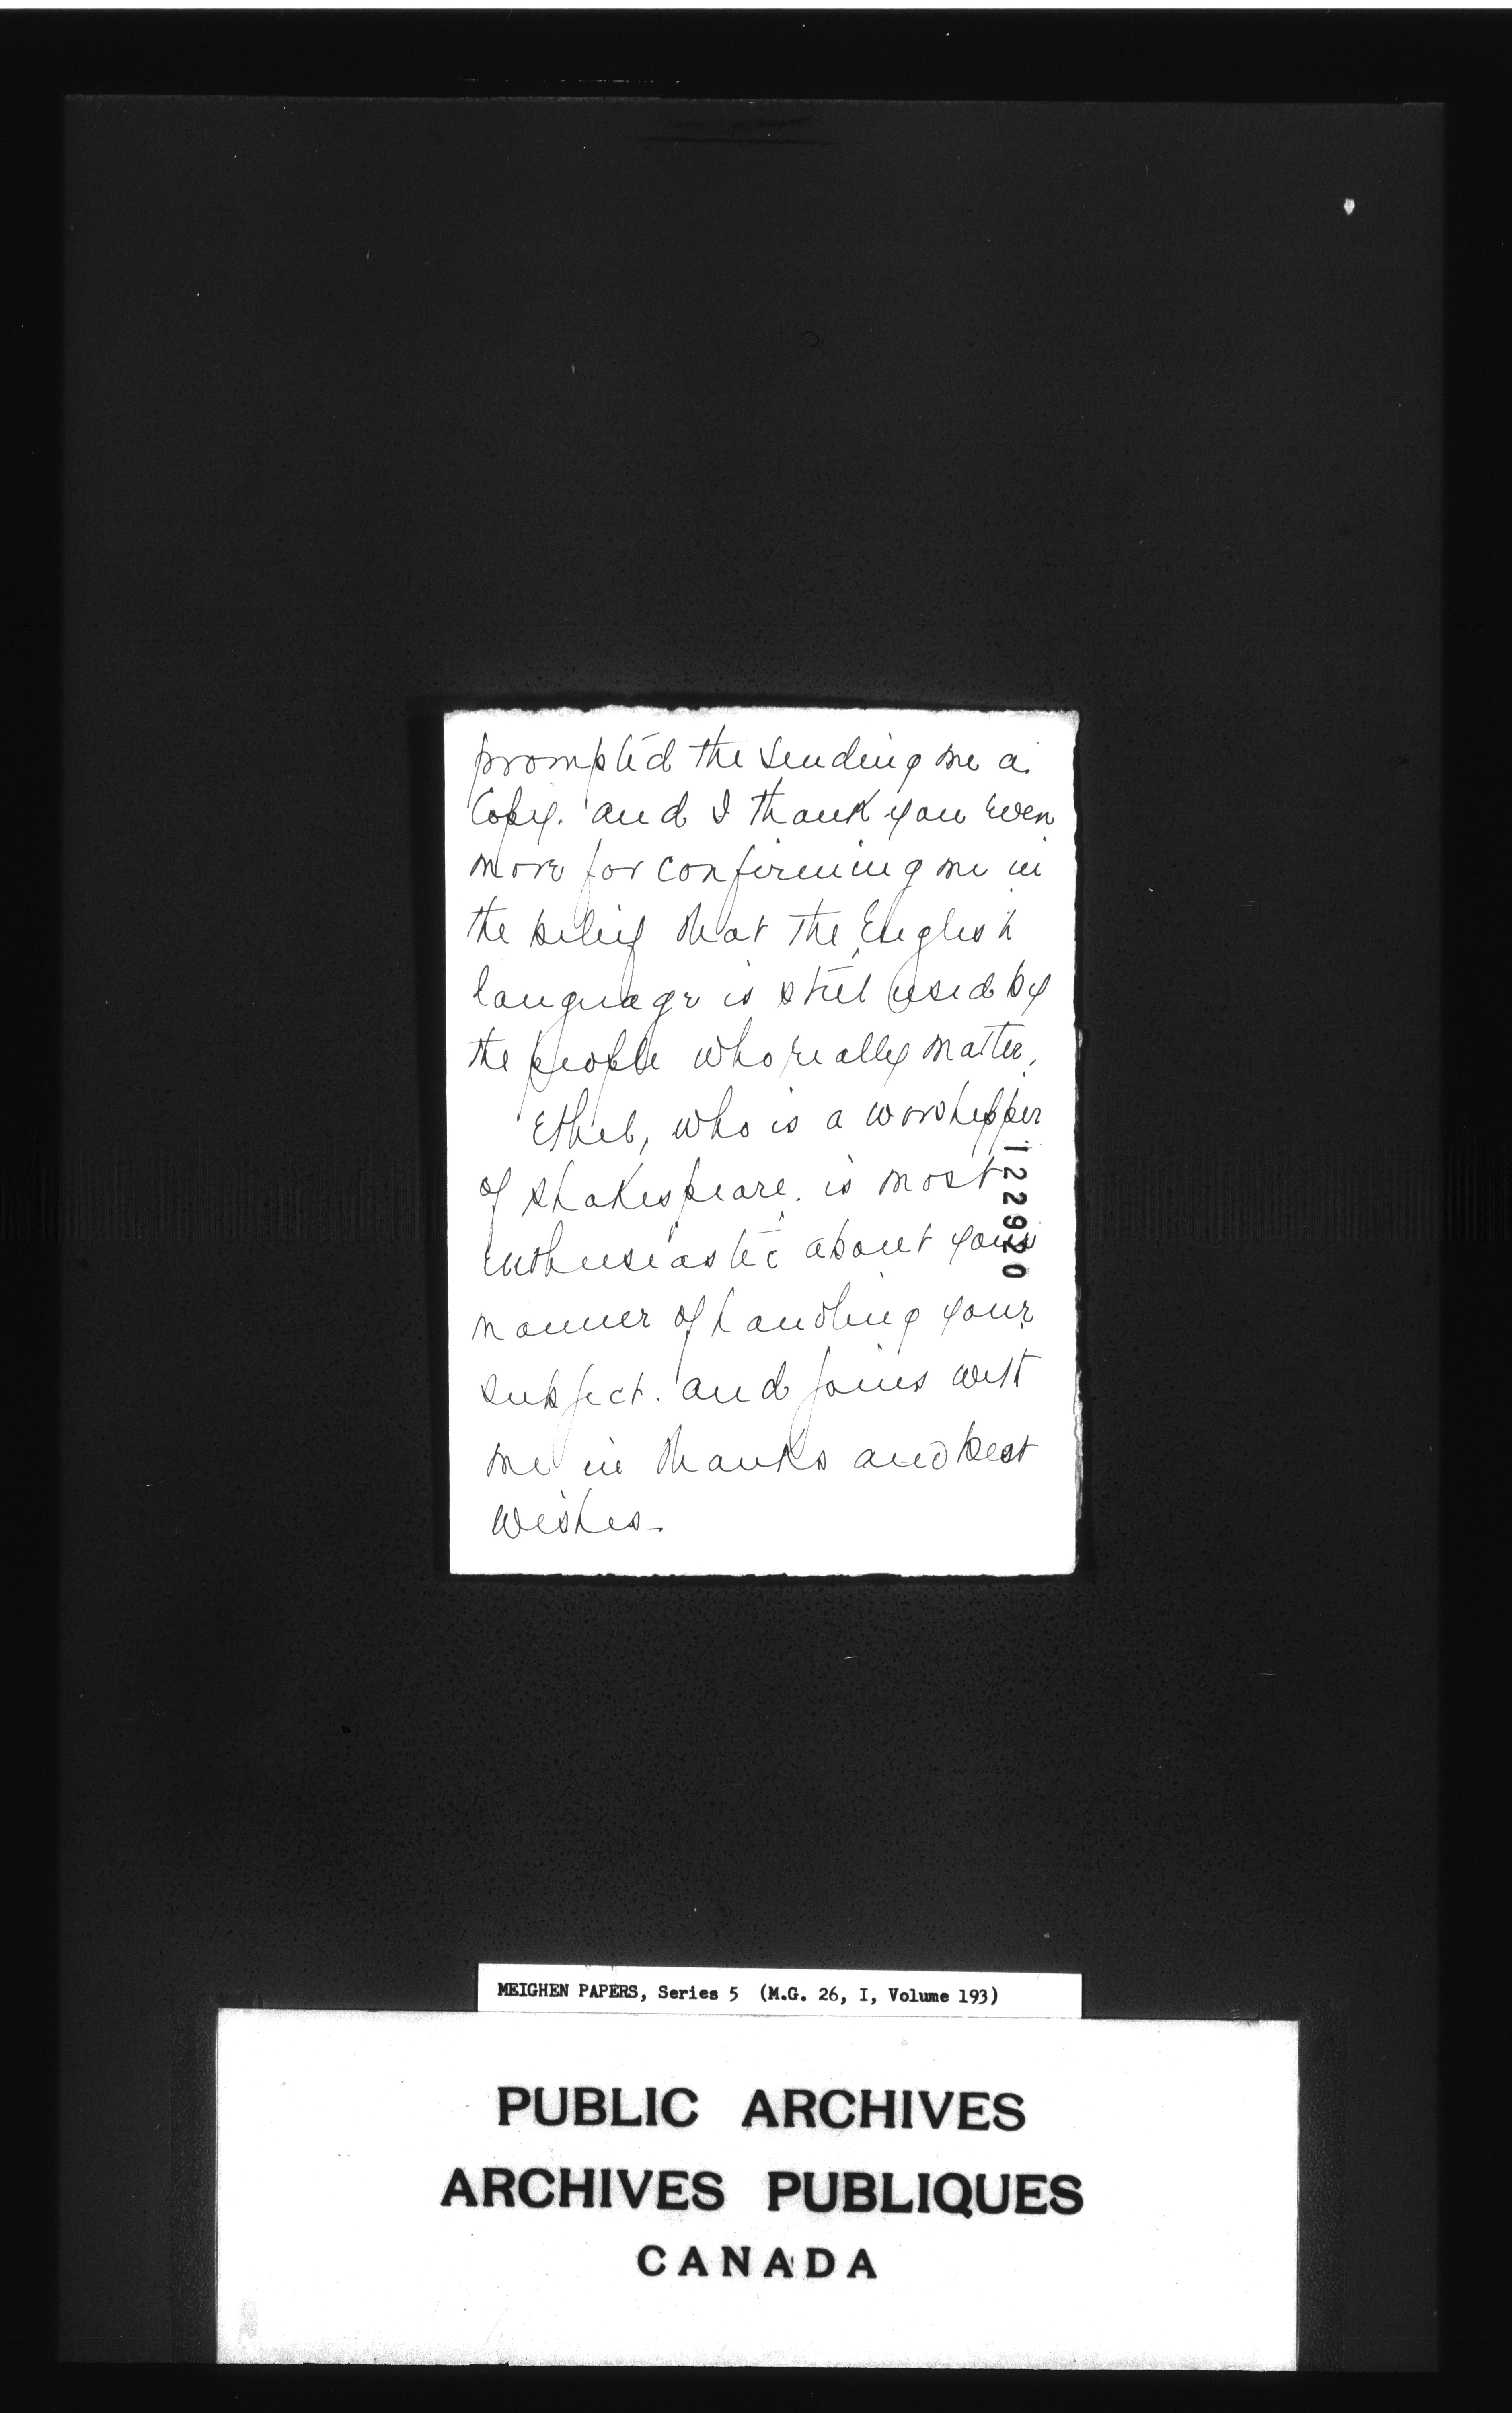 prompted the sending me a
Copy. and I thank you even
more for confirming me in
the belief that the English
language is still used by
the people who really matter.
Ethel, who is a worshipper
of Shakespeare. is most
enthusiastic about your
manner of handling your
subject. and joins with
me in thanks and best
wishes.
122920
MEIGHEN PAPERS, Series 5 (M.G. 26, I, Volume 193)
PUBLIC ARCHIVES
ARCHIVES PUBLIQUES
CANADA